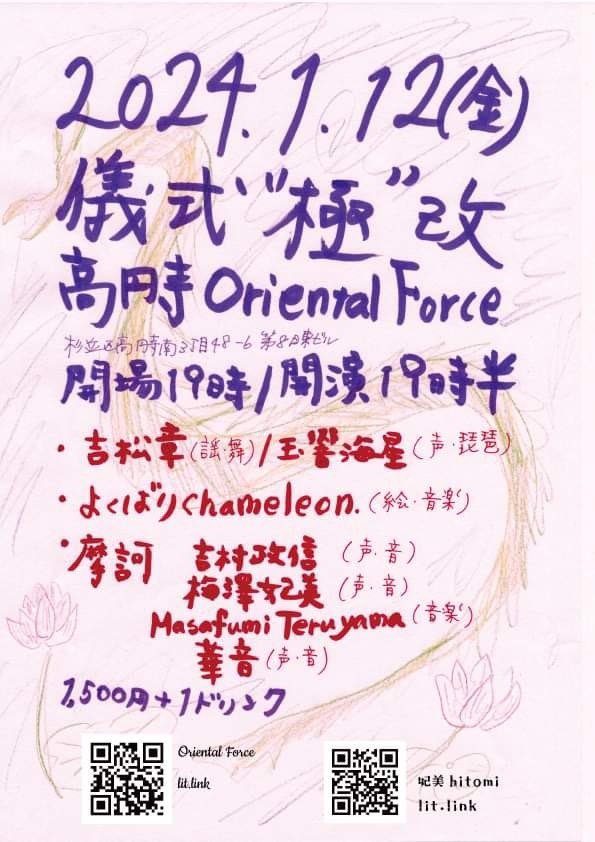 2024.1.12(金)
儀式"極"改
高円寺 Oriental Force
杉並区高円寺南3丁目48-6 第8東ビル
開場19時/開演19時半
・吉松章(謡・舞)/玉響海星(声・琵琶)
・よくばりchameleon.(絵・音楽)
・摩訶 吉村政信(声・音)
梅澤妃美(声・音)
Masafumi Teruyama(音楽)
華音(声・音)
1,500円+1ドリンク
Oriental Force
lit.link
妃美hitomi
lit.link